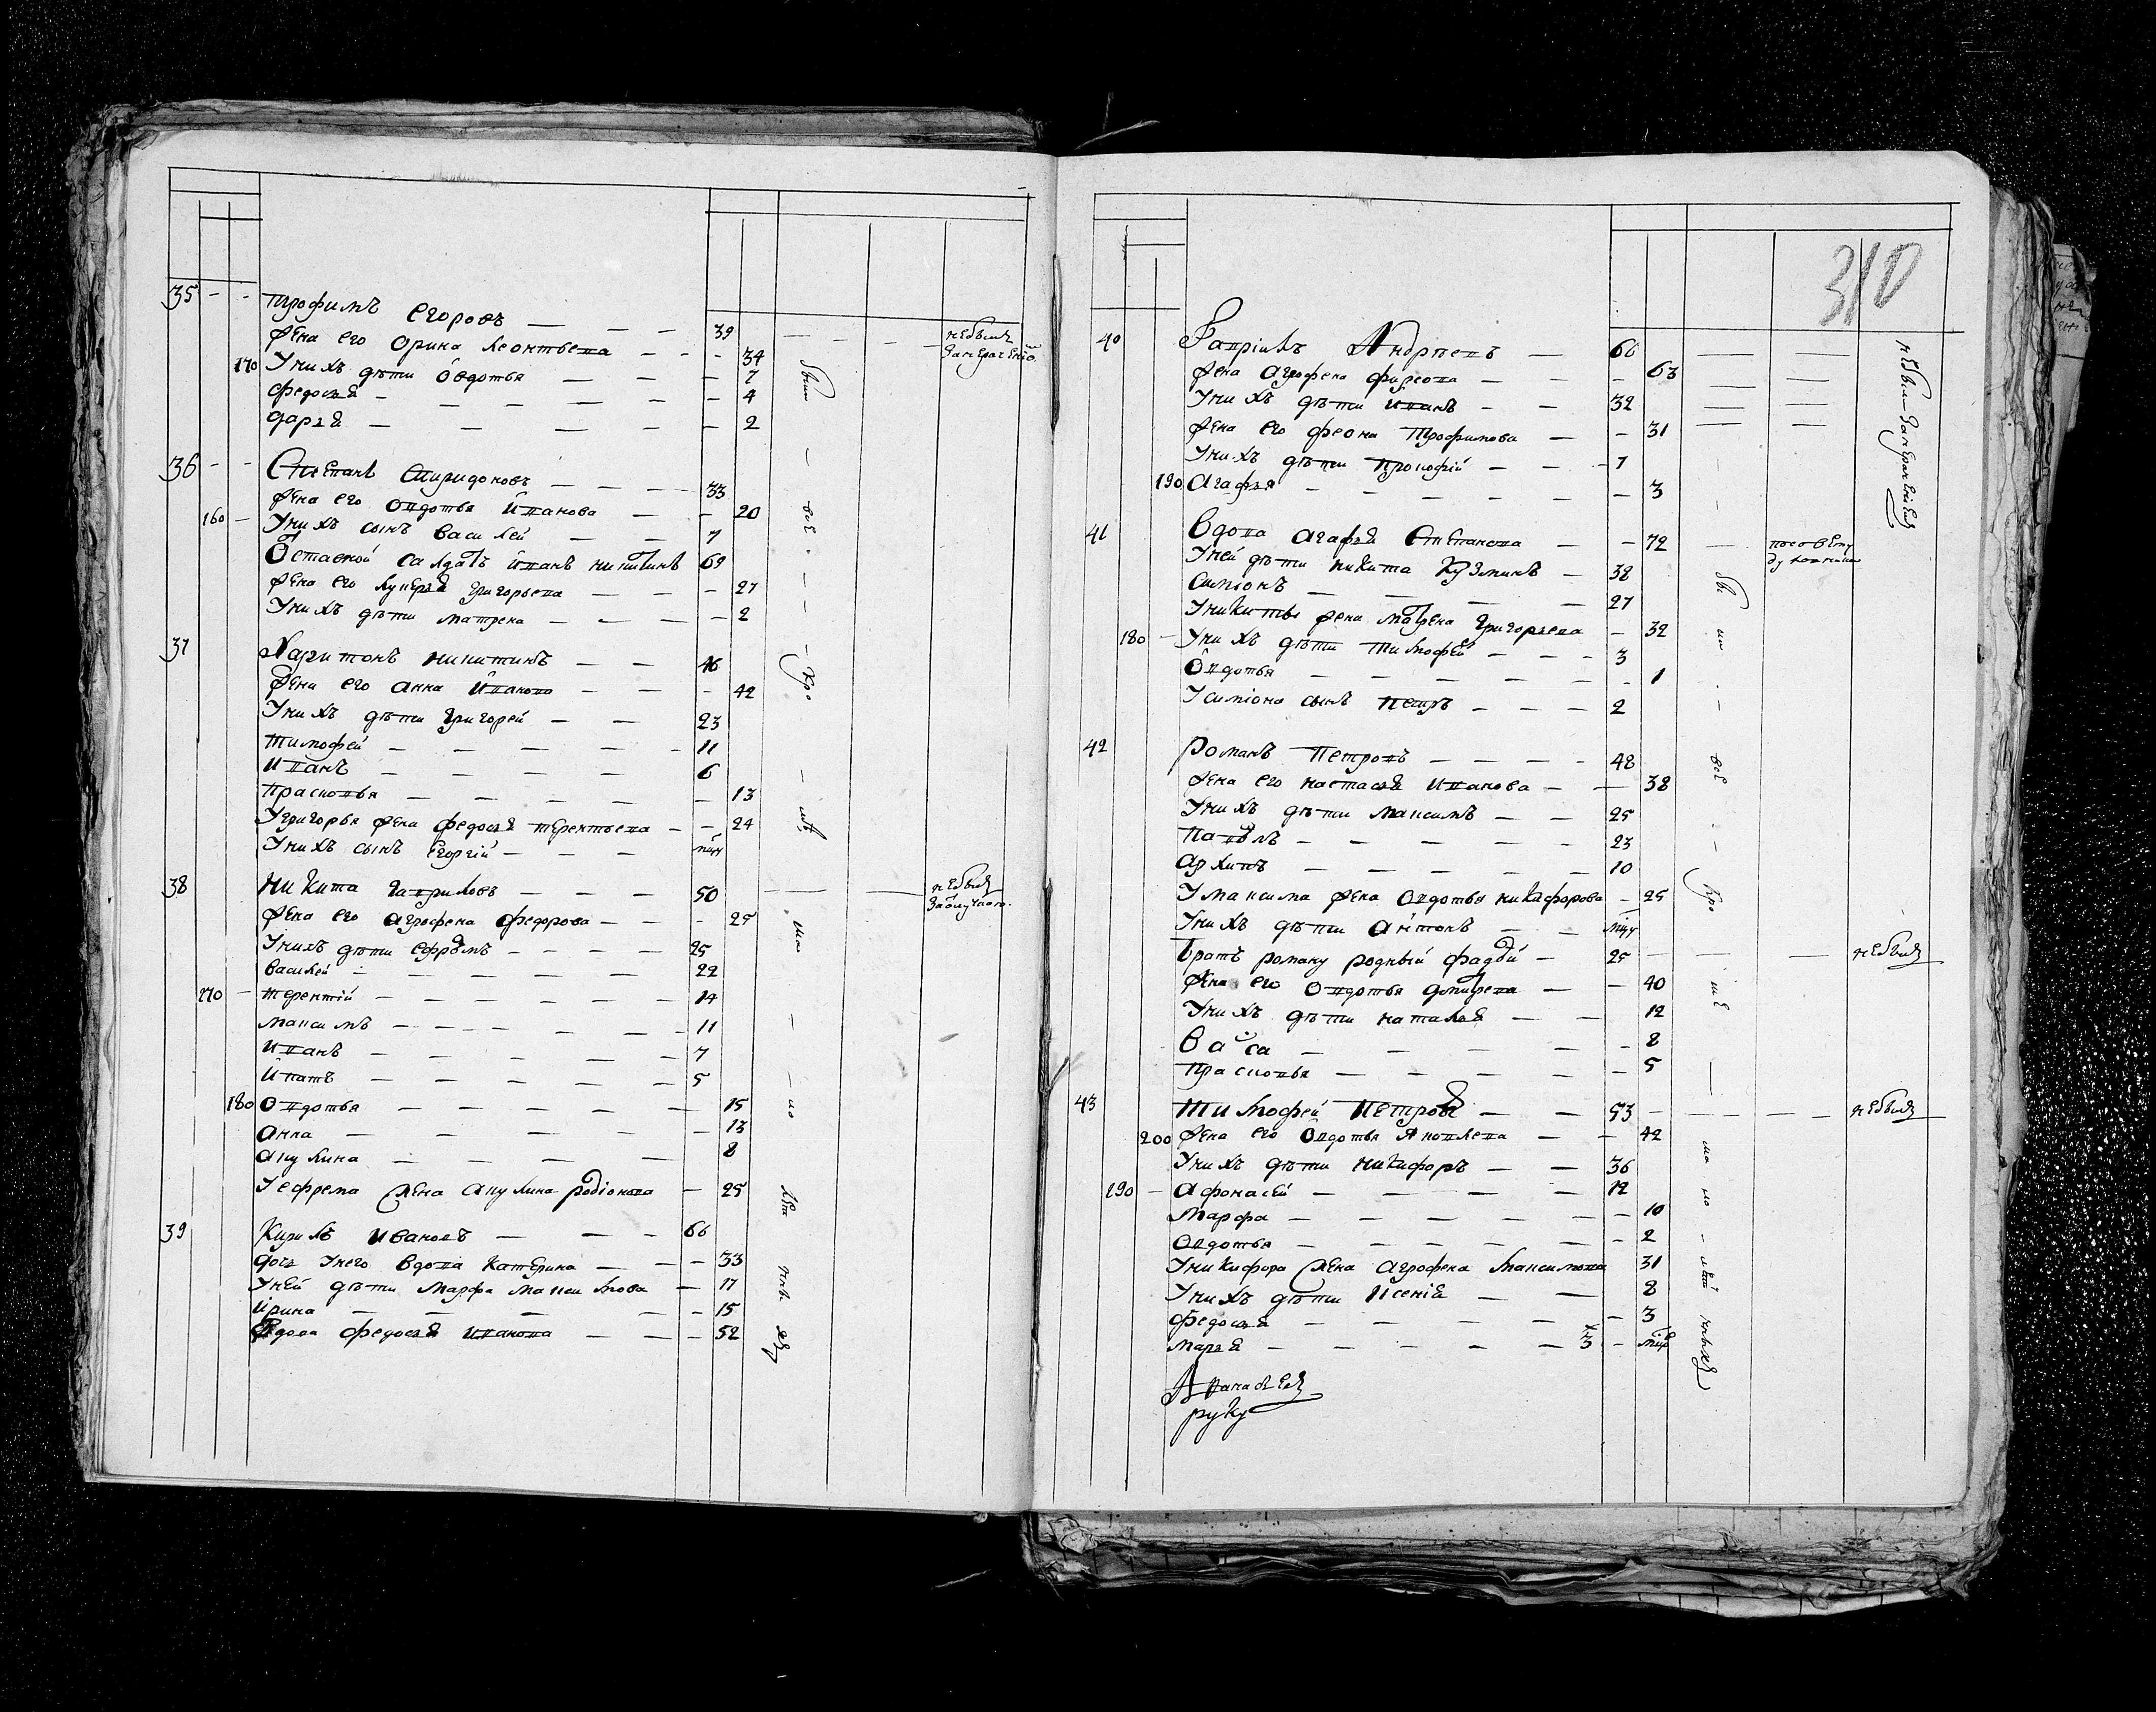 35 - - Трофимъ Егоровъ — — — 39
жена его Орина Леонтьева — — — 34 небыли занерачениѣ
170 У нихъ дѣти Овдотья — — — 7
Федосья — — — — — — 4
Дарья — — — — — 2
36 - - Степанъ Спиридоновъ — — — — 33
жена его Овдотья Иванова — — 20
160 - У нихъ сынъ Василей — — 7
Оставной салдатъ Иванъ Никитинъ 69
жена его Лукерья Григорьева — — — 27
У нихъ дѣти Матрена — — — — 2
37 Харитонъ Никитинъ — — 46
жена его Анна Иванова — — — 42
У нихъ дѣти Григорей — — 23
Тимофей — — — — — 11
Иванъ — — — — 6
Прасковья — — — — — — 13
У Григорья жена Федосья Терентьева — — 24
У нихъ сынъ Георгій — — — мцу
38 Никита Гавриловъ — — — 50 — — — небылъ
жена его Агрофена Федорова — — — 25
У нихъ дѣти Ефрѣмъ — — — — 25
Василей — — — — — 22
170 - Терентій — — — — — 14
Максимъ — — — — — — 11
Иванъ — — — — — 7
Ипатъ — — — — — 5
180 Овдотья — — — — — — 15
Анна — — — — — 13
Акулина — — — — 8
У Ефрема жена Акулина Родіонова — 25
39 Кирилъ Ивановъ — — — 66
Дочь у него вдова Катерина — — — 33
У ней дѣти Марфа Максимова — 17
Ирина — — — — — 15
Вдова Федосья Иванова — — — 52
310
40 Гавріилъ Андрѣевъ — 66 — —
жена Агрофена Фирсова — — — 63 — —
У нихъ дѣти Иванъ — — 32 — —
жена его Феона Трофимова — — 31 — —
У нихъ дѣти Прокофій — — — 7
190 Агафья — — — — — — 3
41 Вдова Агафья Степанова — — 72 —
У ней дѣти Никита Кузминъ — 38
Симіонъ — — — — 27
У Никиты жена Матрена Григорьева — 32
180 - У нихъ дѣти Тимофей — — — 3
Овдотья — — — — — — 1
У Симіона сынъ Петръ — — — 2
42 Романъ Петровъ — — — — 48
жена его Настасья Иванова — — 38
У нихъ дѣти Максимъ — — 25
Павѣлъ — — — — — 23
Архипъ — — — — — 10
У Максима жена Овдотья Никифорова — 25
У нихъ дѣти Антонъ — — мцу
Братъ Роману родный Фадѣй — 25 — — — небылъ
жена его Овдотья Дмитрева — — 40
У нихъ дѣти Наталья — — 12
Васса — — — — — 8
Прасковья — — — — — 5
43 Тимофей Петровъ — — 53 — — — — небылъ
200 жена его Овдотья Яковлева — — 42
У нихъ дѣти Никифоръ — — 36
190 - Афонасей — — — — 12
Марфа — — — — — — 10
Овдотья — — — — — — 2
У Никифора жена Агрофена Максимова 31
У нихъ дѣти Ксенія — — 8
Федосья — — — — — — 3
Марья — — — — — 3 —
руку